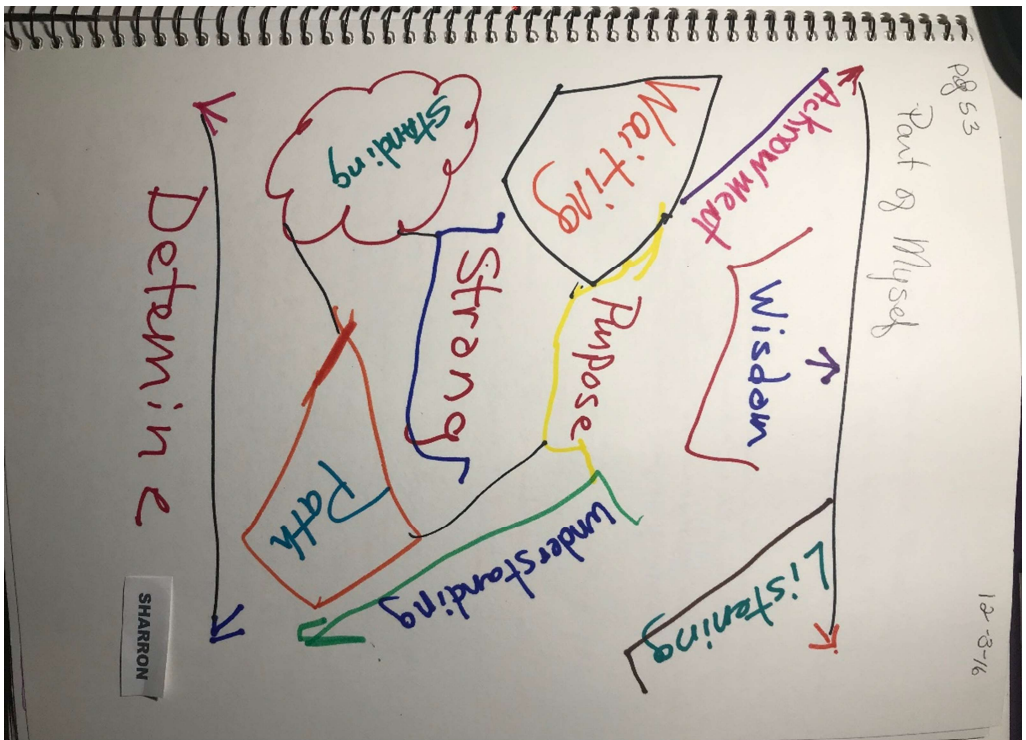 pg 53
12-3-16
Part of Mysef
Acknowment
Wisdom
Listening
Waiting
Purpose
understanding
Standing
Strong
Path
Detemine
SHARRON